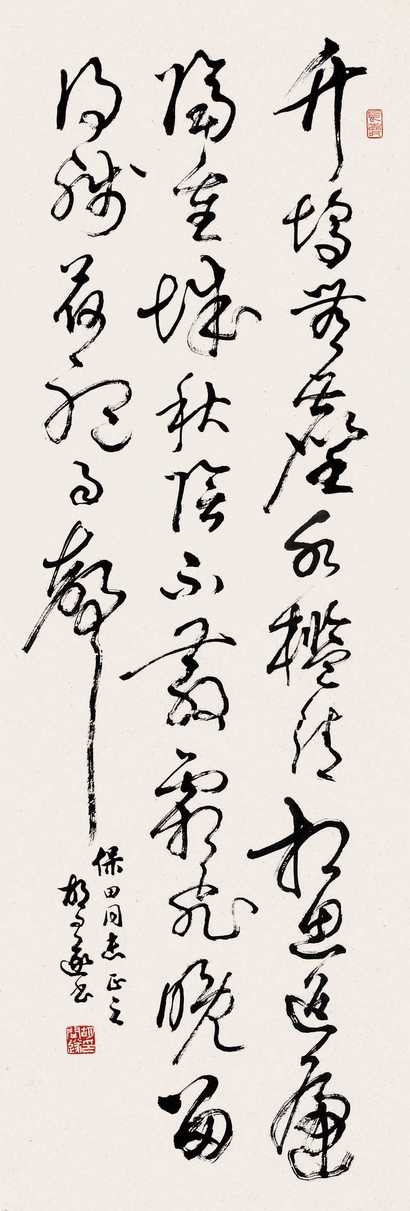 竹塢無塵水檻清相思迢遞
隔重城秋陰不散霜飛晚留
得殘荷聽雨聲
保田同志正之
胡問遂書